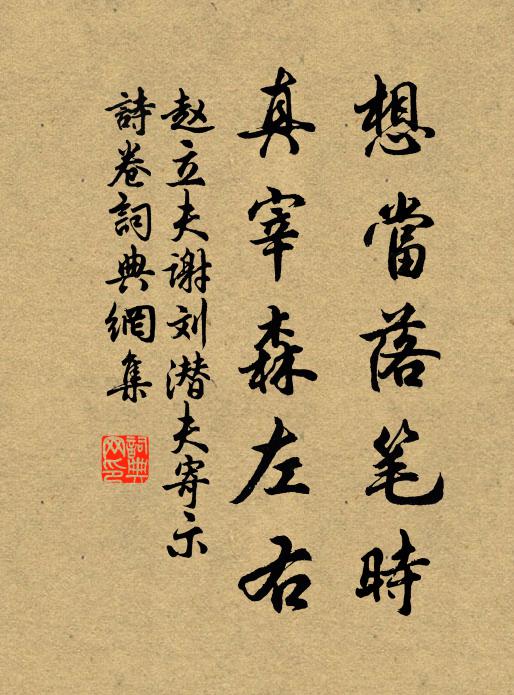 想當落笔時
真宰森左右
赵立夫谢刘潜夫寄示
詩卷詞典網集
詞典
网印